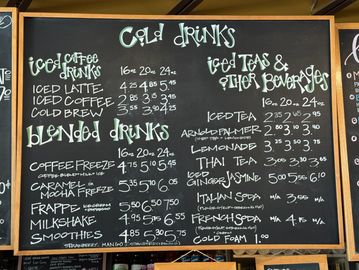 Cold drinks
iced coffee drinks
16oz 20oz 24oz
ICED LATTE 4.25 4.85 5.45
ICED COFFEE 2.85 3.5 3.95
COLD BREW 3.55 3.90 4.25
blended drinks
16oz 20oz 24oz
COFFEE FREEZE 4.75 5.10 5.45
COFFEE BLENDED W/ ICE
CARAMEL OR MOCHA FREEZE 5.35 5.70 6.05
FRAPPE 5.50 6.50 7.50
MILKSHAKE 4.95 5.75 6.55
SMOOTHIES 4.85 5.30 5.75
STRAWBERRY, MANGO
iced teas & other beverages
16oz 20oz 24oz
ICED TEA 2.35 2.65 2.95
ARNOLD PALMER 2.80 3.10 3.40
LEMONADE 3.25 3.50 3.75
THAI TEA 3.00 3.30 3.65
ICED GINGER JASMINE 5.00 5.55 6.10
ITALIAN SODA N/A 3.55 N/A
FRENCH SODA N/A 4.15 N/A
COLD FOAM 1.00